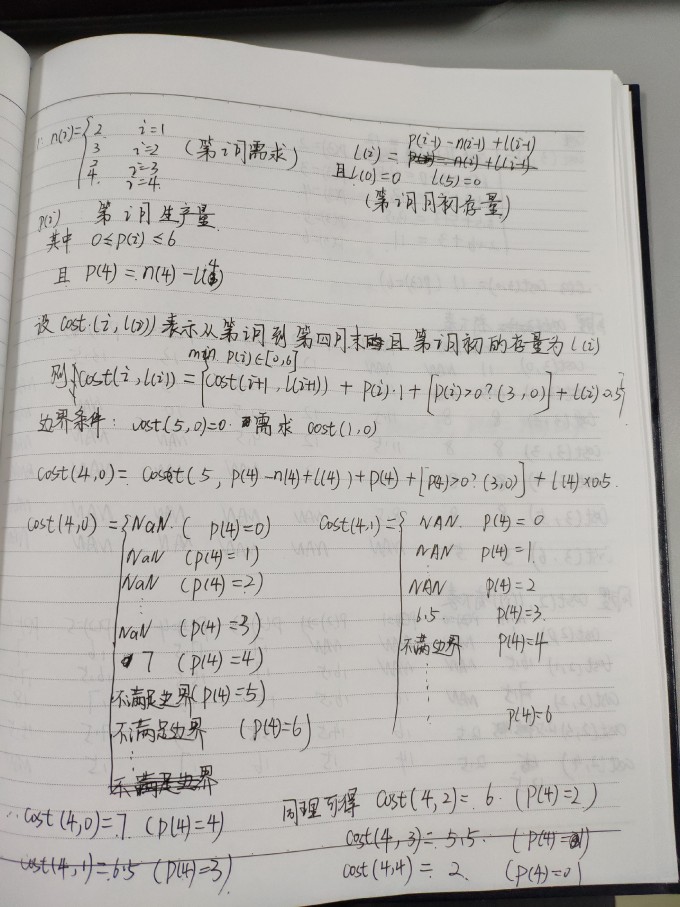 1: n(i)= { 2 i=1
3 i=2 (第i月需求)
3 i=3
4. i=4.
L(i) = P(i-1) - n(i-1) + L(i-1)
且L(0)=0 L(5)=0
(第i月月初存量)
P(i) 第i月生产量
其中 0≤P(i)≤6
且 P(4) = n(4) - L(4)
设 cost(i, L(i)) 表示从第i月到第四月末且第i月初的存量为L(i)
则 cost(i, L(i)) = min P(i)∈[0,6] { cost(i+1, L(i+1)) + P(i)·1 + [P(i)>0?(3,0)] + L(i)0.5 }
边界条件: cost(5,0)=0. 需求 cost(1,0)
cost(4,0) = cost(5, P(4)-n(4)+L(4)) + P(4) + [P(4)>0?(3,0)] + L(4)×0.5.
cost(4,0) = { NaN. (P(4)=0)
NaN (P(4)=1)
NaN (P(4)=2)
⋮
NaN (P(4)=3)
7 (P(4)=4)
不满足边界(P(4)=5)
不满足边界 (P(4)=6)
⋮
不满足边界
cost(4,1) = { NAN. P(4)=0
NAN P(4)=1
⋮
NAN P(4)=2
6.5 P(4)=3.
不满边界 P(4)=4
⋮
P(4)=6
∴ cost(4,0)=7 (P(4)=4)
cost(4,1)=6.5 (P(4)=3)
同理可得 cost(4,2)=6. (P(4)=2)
cost(4,3)=5.5. (P(4)=1)
cost(4,4)=2. (P(4)=0)